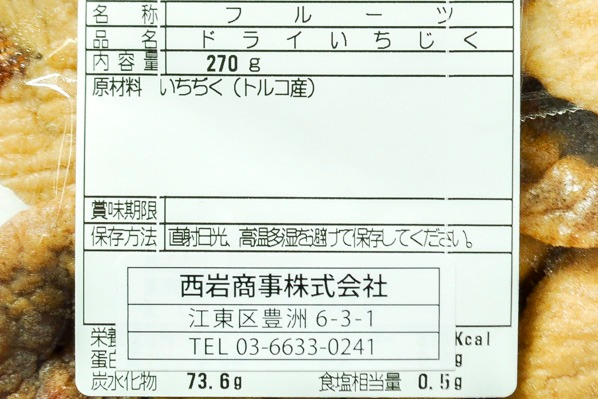 名称 フルーツ
品名 ドライいちじく
内容量 270g
原材料 いちぢく(トルコ産)
賞味期限
保存方法 直射日光、高温多湿を避けて保存してください。
西岩商事株式会社
江東区豊洲 6-3-1
TEL 03-6633-0241
栄養 Kcal
蛋白 g
炭水化物 73.6g 食塩相当量 0.5g